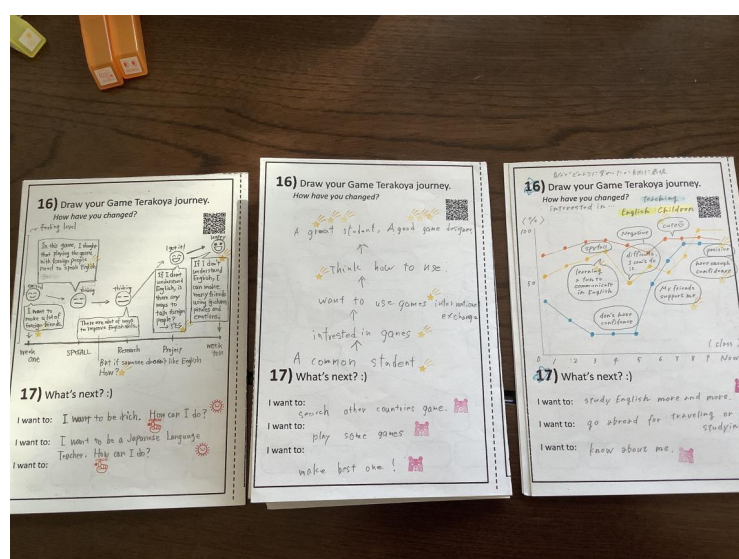 16) Draw your Game Terakoya journey.
How have you changed?
feeling level
In this game, I thought
that playing the game
with foreign people
need to speak English
I want to
make a lot of
foreign friends.
thinking
There are a lot of ways
to improve English skills.
I get it!
If I don't
understand
English, is
there any
ways to
talk foreign
people?
→ YES
happy
If I don't
understand
English, I
can make
many friends
using gestures,
and
emotions.
week
one
SPYFALL
Research
Project
week
ten
But if someone doesn't like English
How?
17) What's next? :)
I want to: I want to be rich. How can I do?
I want to: I want to be a Japanese Language
Teacher. How can I do?
I want to:
16) Draw your Game Terakoya journey.
How have you changed?
A great student, A good game designer
Think how to use.
want to use games international
exchange
intrested in games
A common student
17) What's next? :)
I want to: search other countries game.
I want to: play some games
I want to: make best one!
16) Draw your Game Terakoya journey.
How have you changed?
teaching
interested in ... English Children
(%)
100
50
0 1 2 3 4 5 6 7 8 9 Now
(class)
spyfall
Negative
cute
learning
a fun to
communicate
in English
My friends
support me.
don't have
confidence
have enough
confidence
17) What's next? :)
I want to: study English more and more.
I want to: go abroad for traveling or
studyin
I want to: know about me.